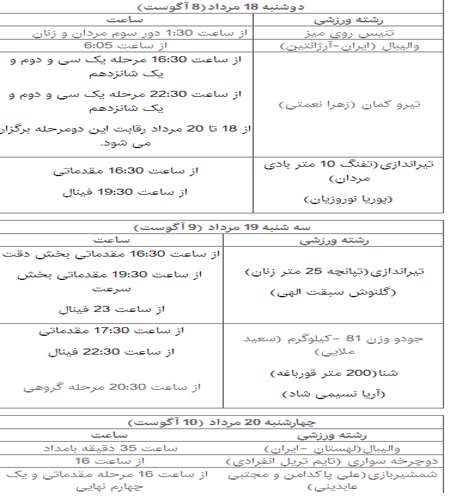 دوشنبه 18 مرداد(8 آگوست)
رشته ورزشی ساعت
تنیس روی میز از ساعت 1:30 دور سوم مردان و زنان
والیبال (ایران-آرژانتین) از ساعت 6:05
تیرو کمان (زهرا نعمتی)
از ساعت 16:30 مرحله یک سی و دوم و
یک شانزدهم
از ساعت 22:30 مرحله یک سی و دوم و
یک شانزدهم
از 18 تا 20 مرداد رقابت این دومرحله برگزار
می شود.
تیراندازی(تفنگ 10 متر بادی
مردان)
(پوریا نوروزیان)
از ساعت 16:30 مقدماتی
از ساعت 19:30 فینال
سه شنبه 19 مرداد (9 آگوست)
رشته ورزشی ساعت
تیراندازی(تپانچه 25 متر زنان)
(گلنوش سبقت الهی)
از ساعت 16:30 مقدماتی بخش دقت
از ساعت 19:30 مقدماتی بخش
سرعت
از ساعت 23 فینال
جودو وزن 81 -کیلوگرم (سعید
ملایی)
شنا(200 متر قورباغه)
(آریا نسیمی شاد)
از ساعت 17:30 مقدماتی
از ساعت 22:30 فینال
از ساعت 20:30 مرحله گروهی
چهارشنبه 20 مرداد (10 آگوست)
رشته ورزشی ساعت
والیبال(لهستان -ایران) ساعت 35 دقیقه بامداد
دوچرخه سواری (تایم تریل انفرادی) از ساعت 16
شمشیربازی(علی پاکدامن و مجتبی
عابدینی)
از ساعت 16 مرحله مقدماتی و یک
چهارم نهایی